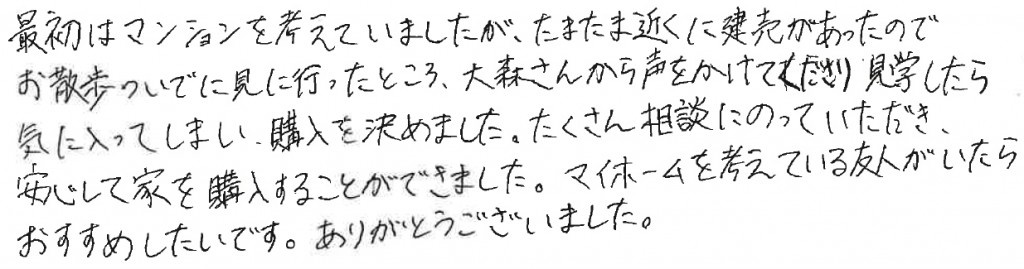 最初はマンションを考えていましたが、たまたま近くに建売があったので
お散歩ついでに見に行ったところ、大森さんから声をかけてくださり見学したら
気に入ってしまい、購入を決めました。たくさん相談にのっていただき、
安心して家を購入することができました。マイホームを考えている友人がいたら
おすすめしたいです。ありがとうございました。